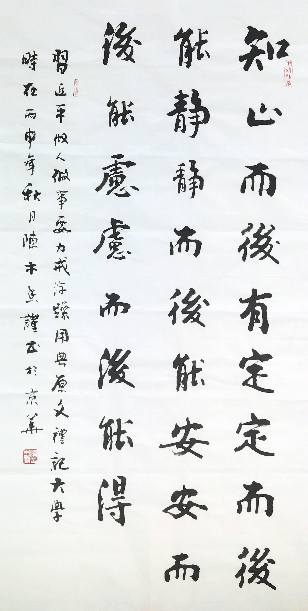 知止而後有定定而後
能静静而後能安安而
後能慮慮而後能得
習近平做人做事要力戒浮躁用典原文禮記大學
時在丙申年秋月陳木謹書於京華